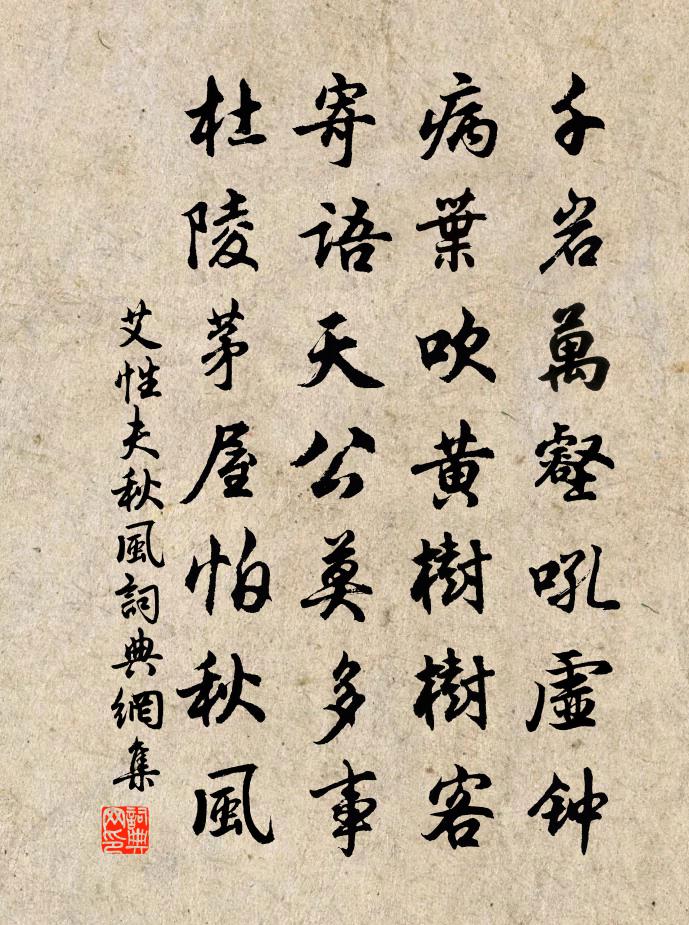 千岩萬壑吼虛钟
病葉吹黄樹樹客
寄語天公莫多事
杜陵茅屋怕秋風
艾性夫秋風詞典網集
詞典网印